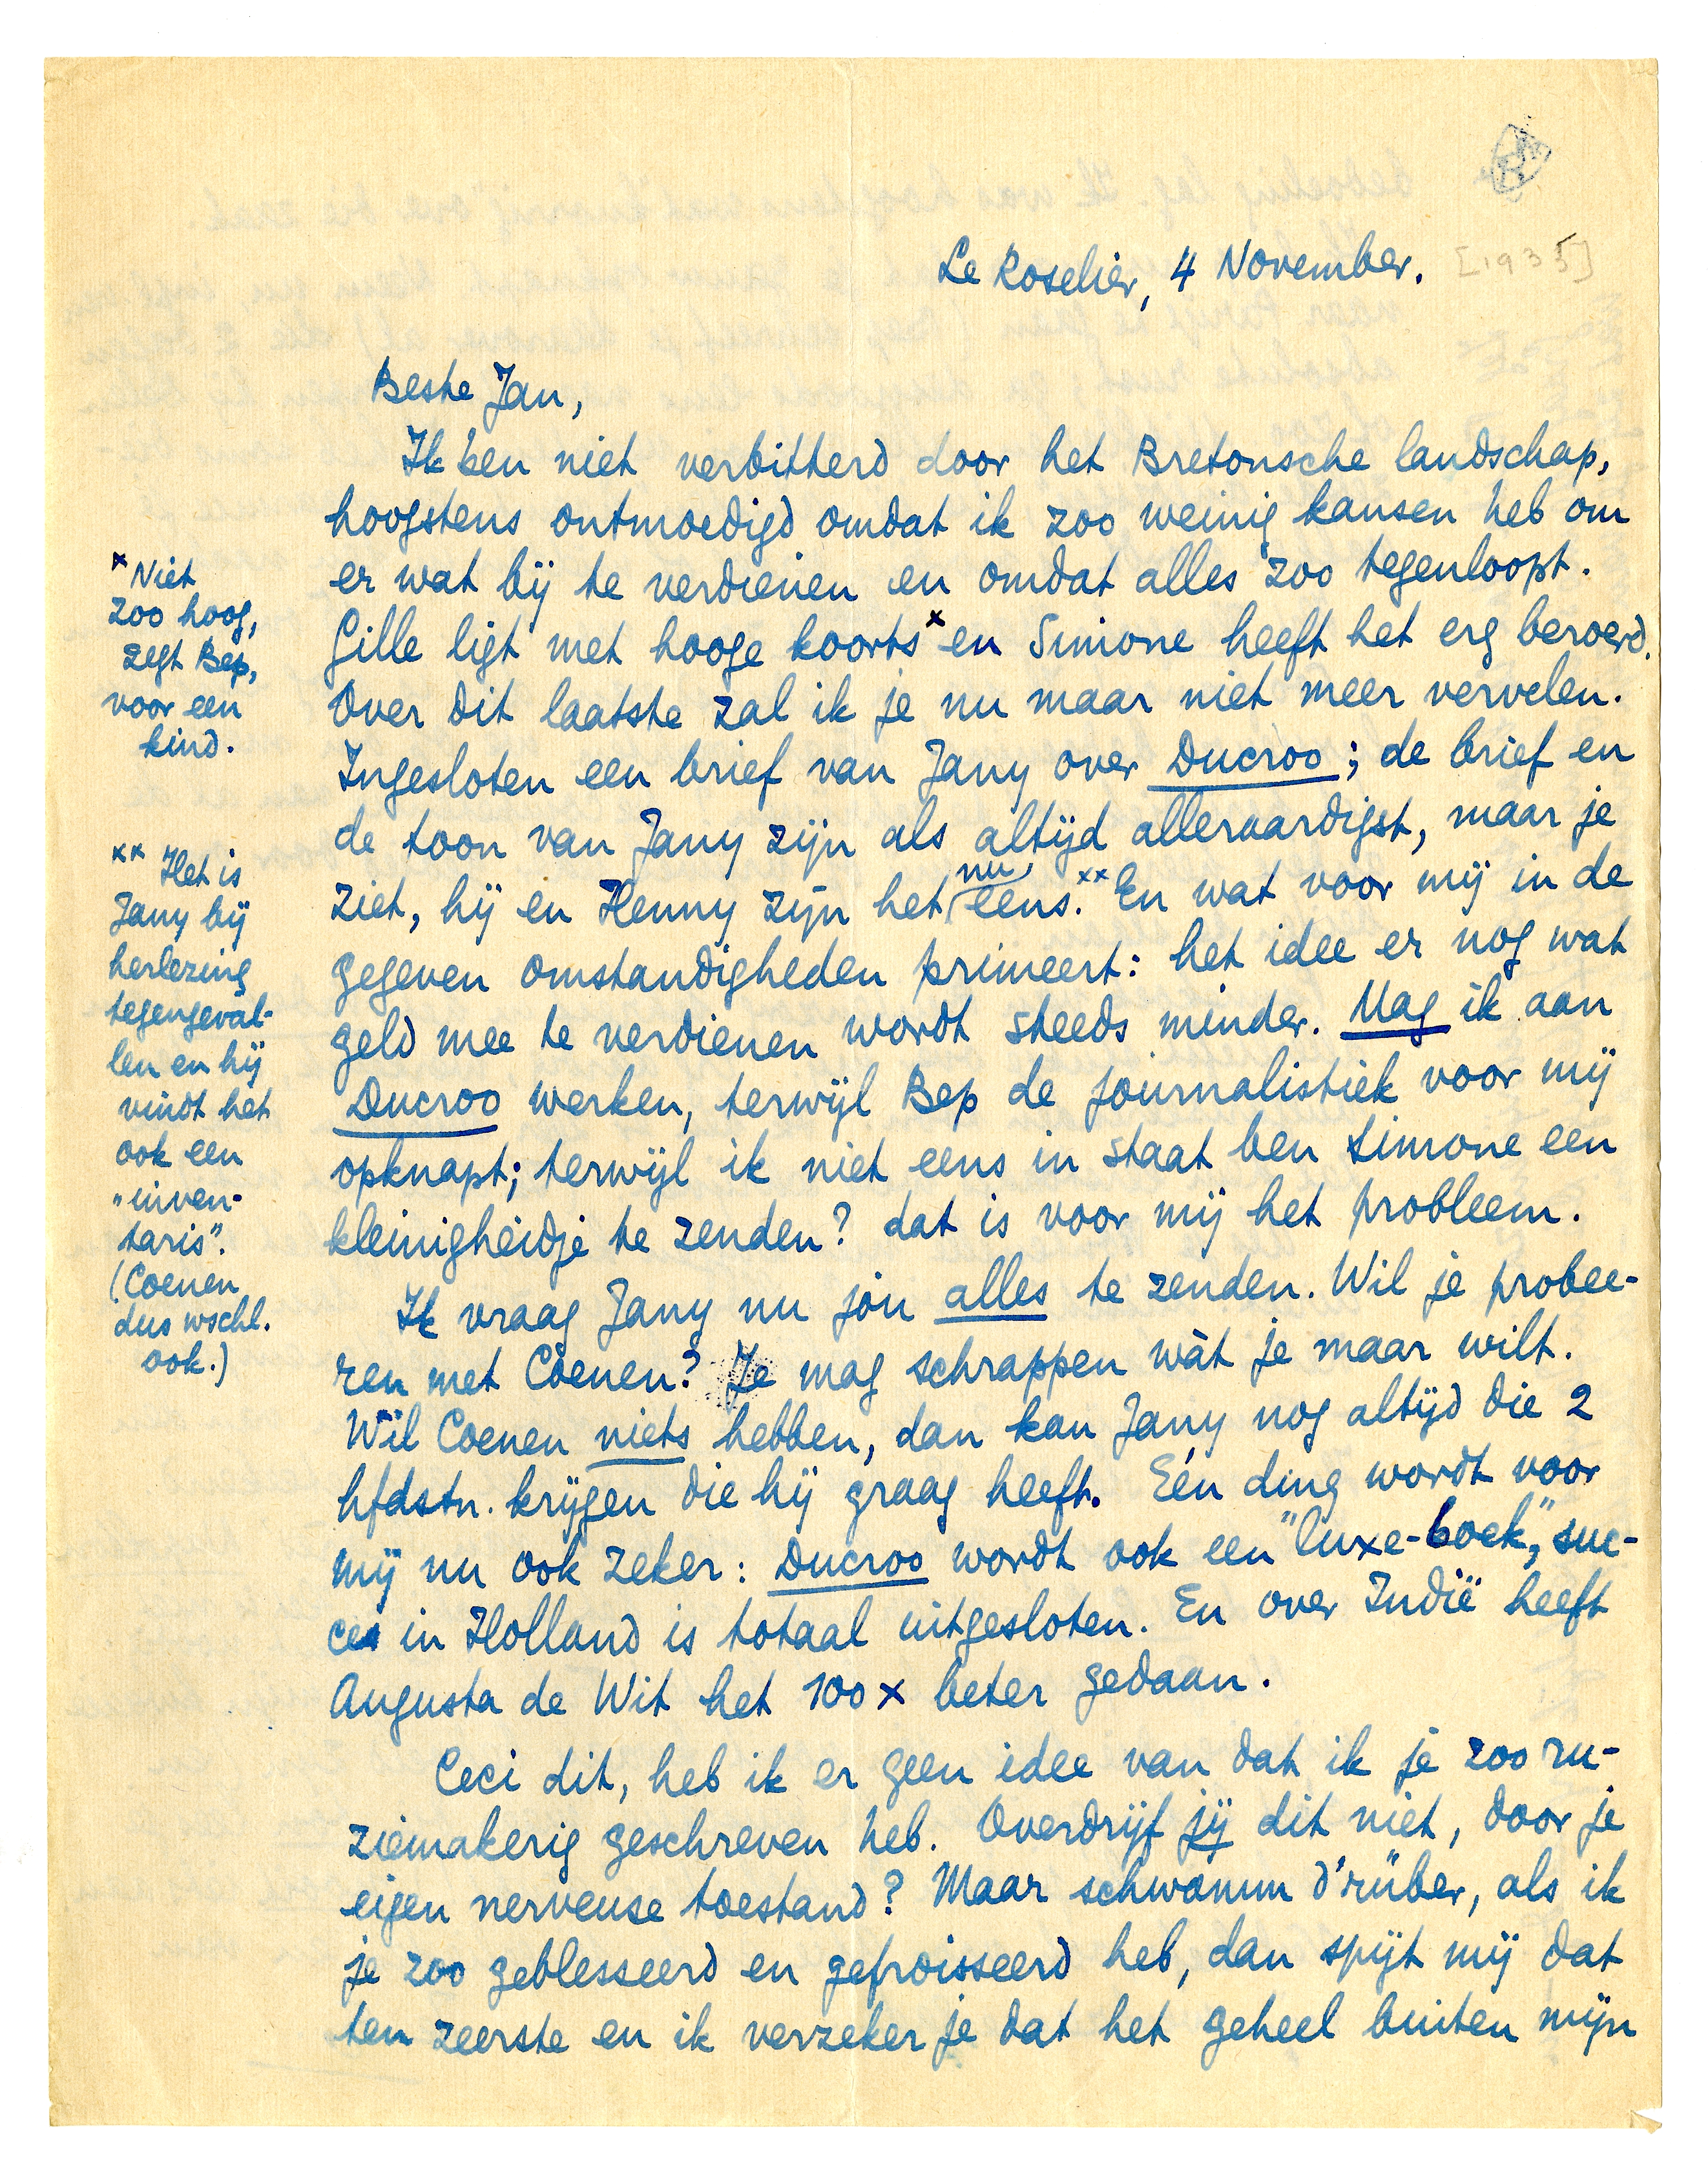 Le Roselier, 4 November.
[1935]
Beste Jan,
Ik ben niet verbitterd door het Bretonsche landschap,
hoogstens ontmoedigd omdat ik zoo weinig kansen heb om
er wat bij te verdienen en omdat alles zoo tegenloopt.
Gille ligt met hooge koorts x en Simone heeft het erg beroerd.
Over dit laatste zal ik je nu maar niet meer vervelen.
Ingesloten een brief van Jany over Ducroo; de brief en
de toon van Jany zijn als altijd alleraardigst, maar je
ziet, hij en Henny zijn het nu eens. xx En wat voor mij in de
gegeven omstandigheden primeert: het idee er nog wat
geld mee te verdienen wordt steeds minder. Mag ik aan
Ducroo werken, terwijl Bep de journalistiek voor mij
opknapt; terwijl ik niet eens in staat ben Simone een
kleinigheidje te zenden? dat is voor mij het probleem.
Ik vraag Jany nu jou alles te zenden. Wil je probee-
ren met Coenen? Je mag schrappen wàt je maar wilt.
Wil Coenen niets hebben, dan kan Jany nog altijd die 2
hfdstn. krijgen die hij graag heeft. Eén ding wordt voor
mij nu ook zeker: Ducroo wordt ook een "luxe-boek", suc-
ces in Holland is totaal uitgesloten. En over Indië heeft
Augusta de Wit het 100 x beter gedaan.
Ceci dit, heb ik er geen idee van dat ik je zoo ru-
ziemakerig geschreven heb. Overdrijf jij dit niet, door je
eigen nerveuse toestand? Maar schwamm d'rüber, als ik
je zoo geblesseerd en gefroisseerd heb, dan spijt mij dat
ten zeerste en ik verzeker je dat het geheel buiten mijn
x Niet
zoo hoog,
zegt Bep,
voor een
kind.
xx Het is
Jany bij
herlezing
tegengeval-
len en hij
vindt het
ook een
"inven-
taris".
(Coenen
dus wschl.
ook.)